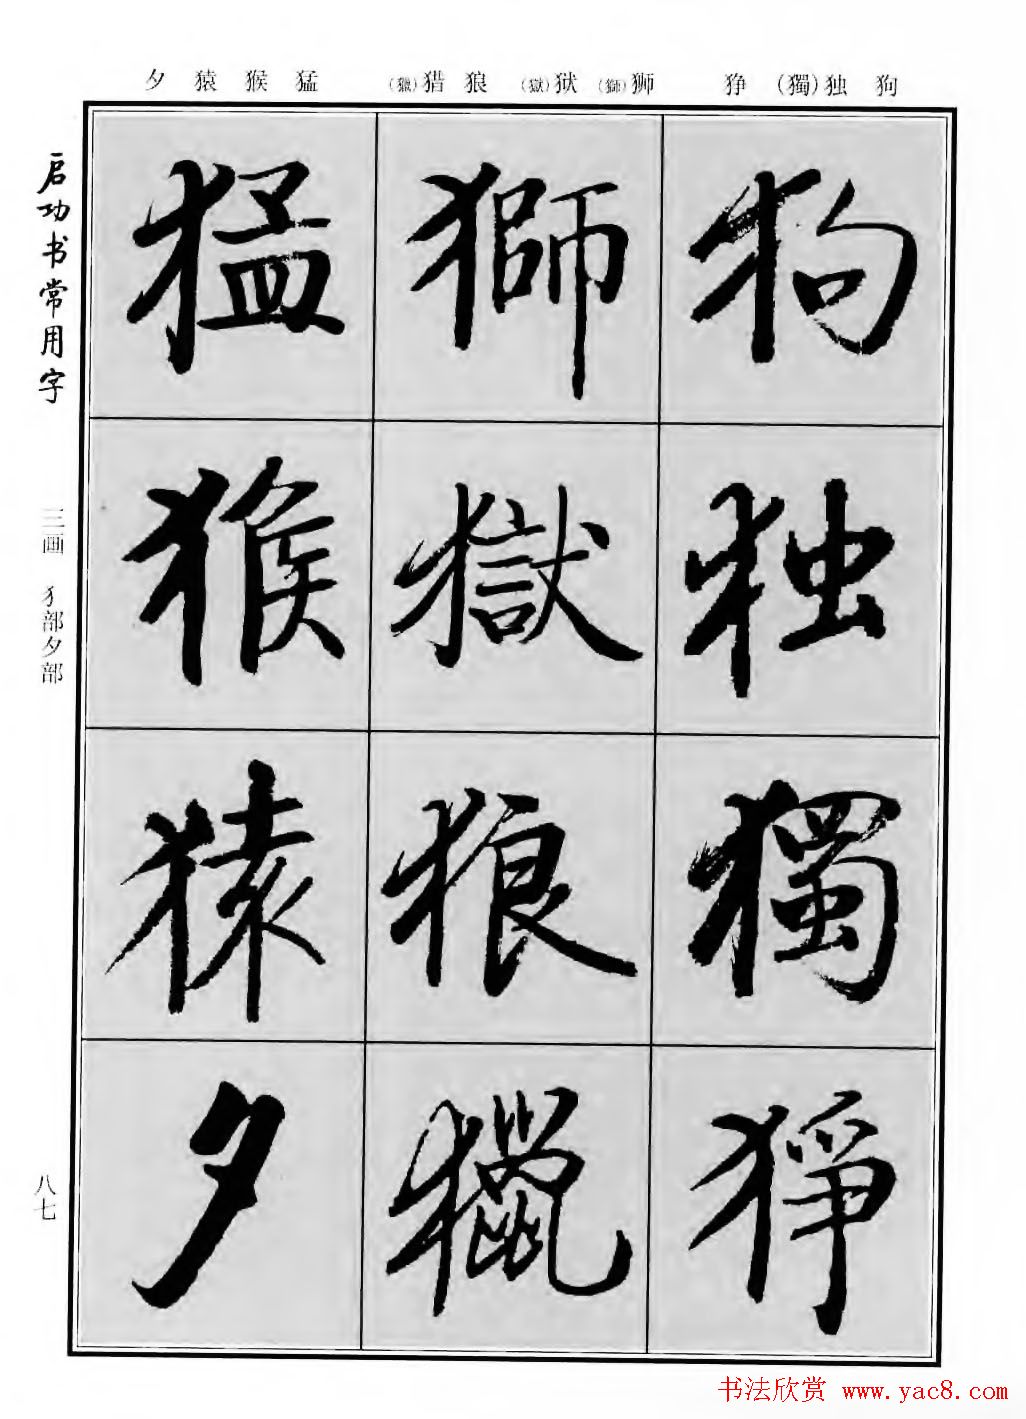 夕 猿 猴 猛 (獵)猎 狼 (獄)狱 (獅)狮 狰 (獨)独 狗
启功书常用字
三画 犭部夕部
八七
狗
独
獨
狰
獅
獄
狼
獵
猛
猴
猿
夕
书法欣赏 www.yac8.com